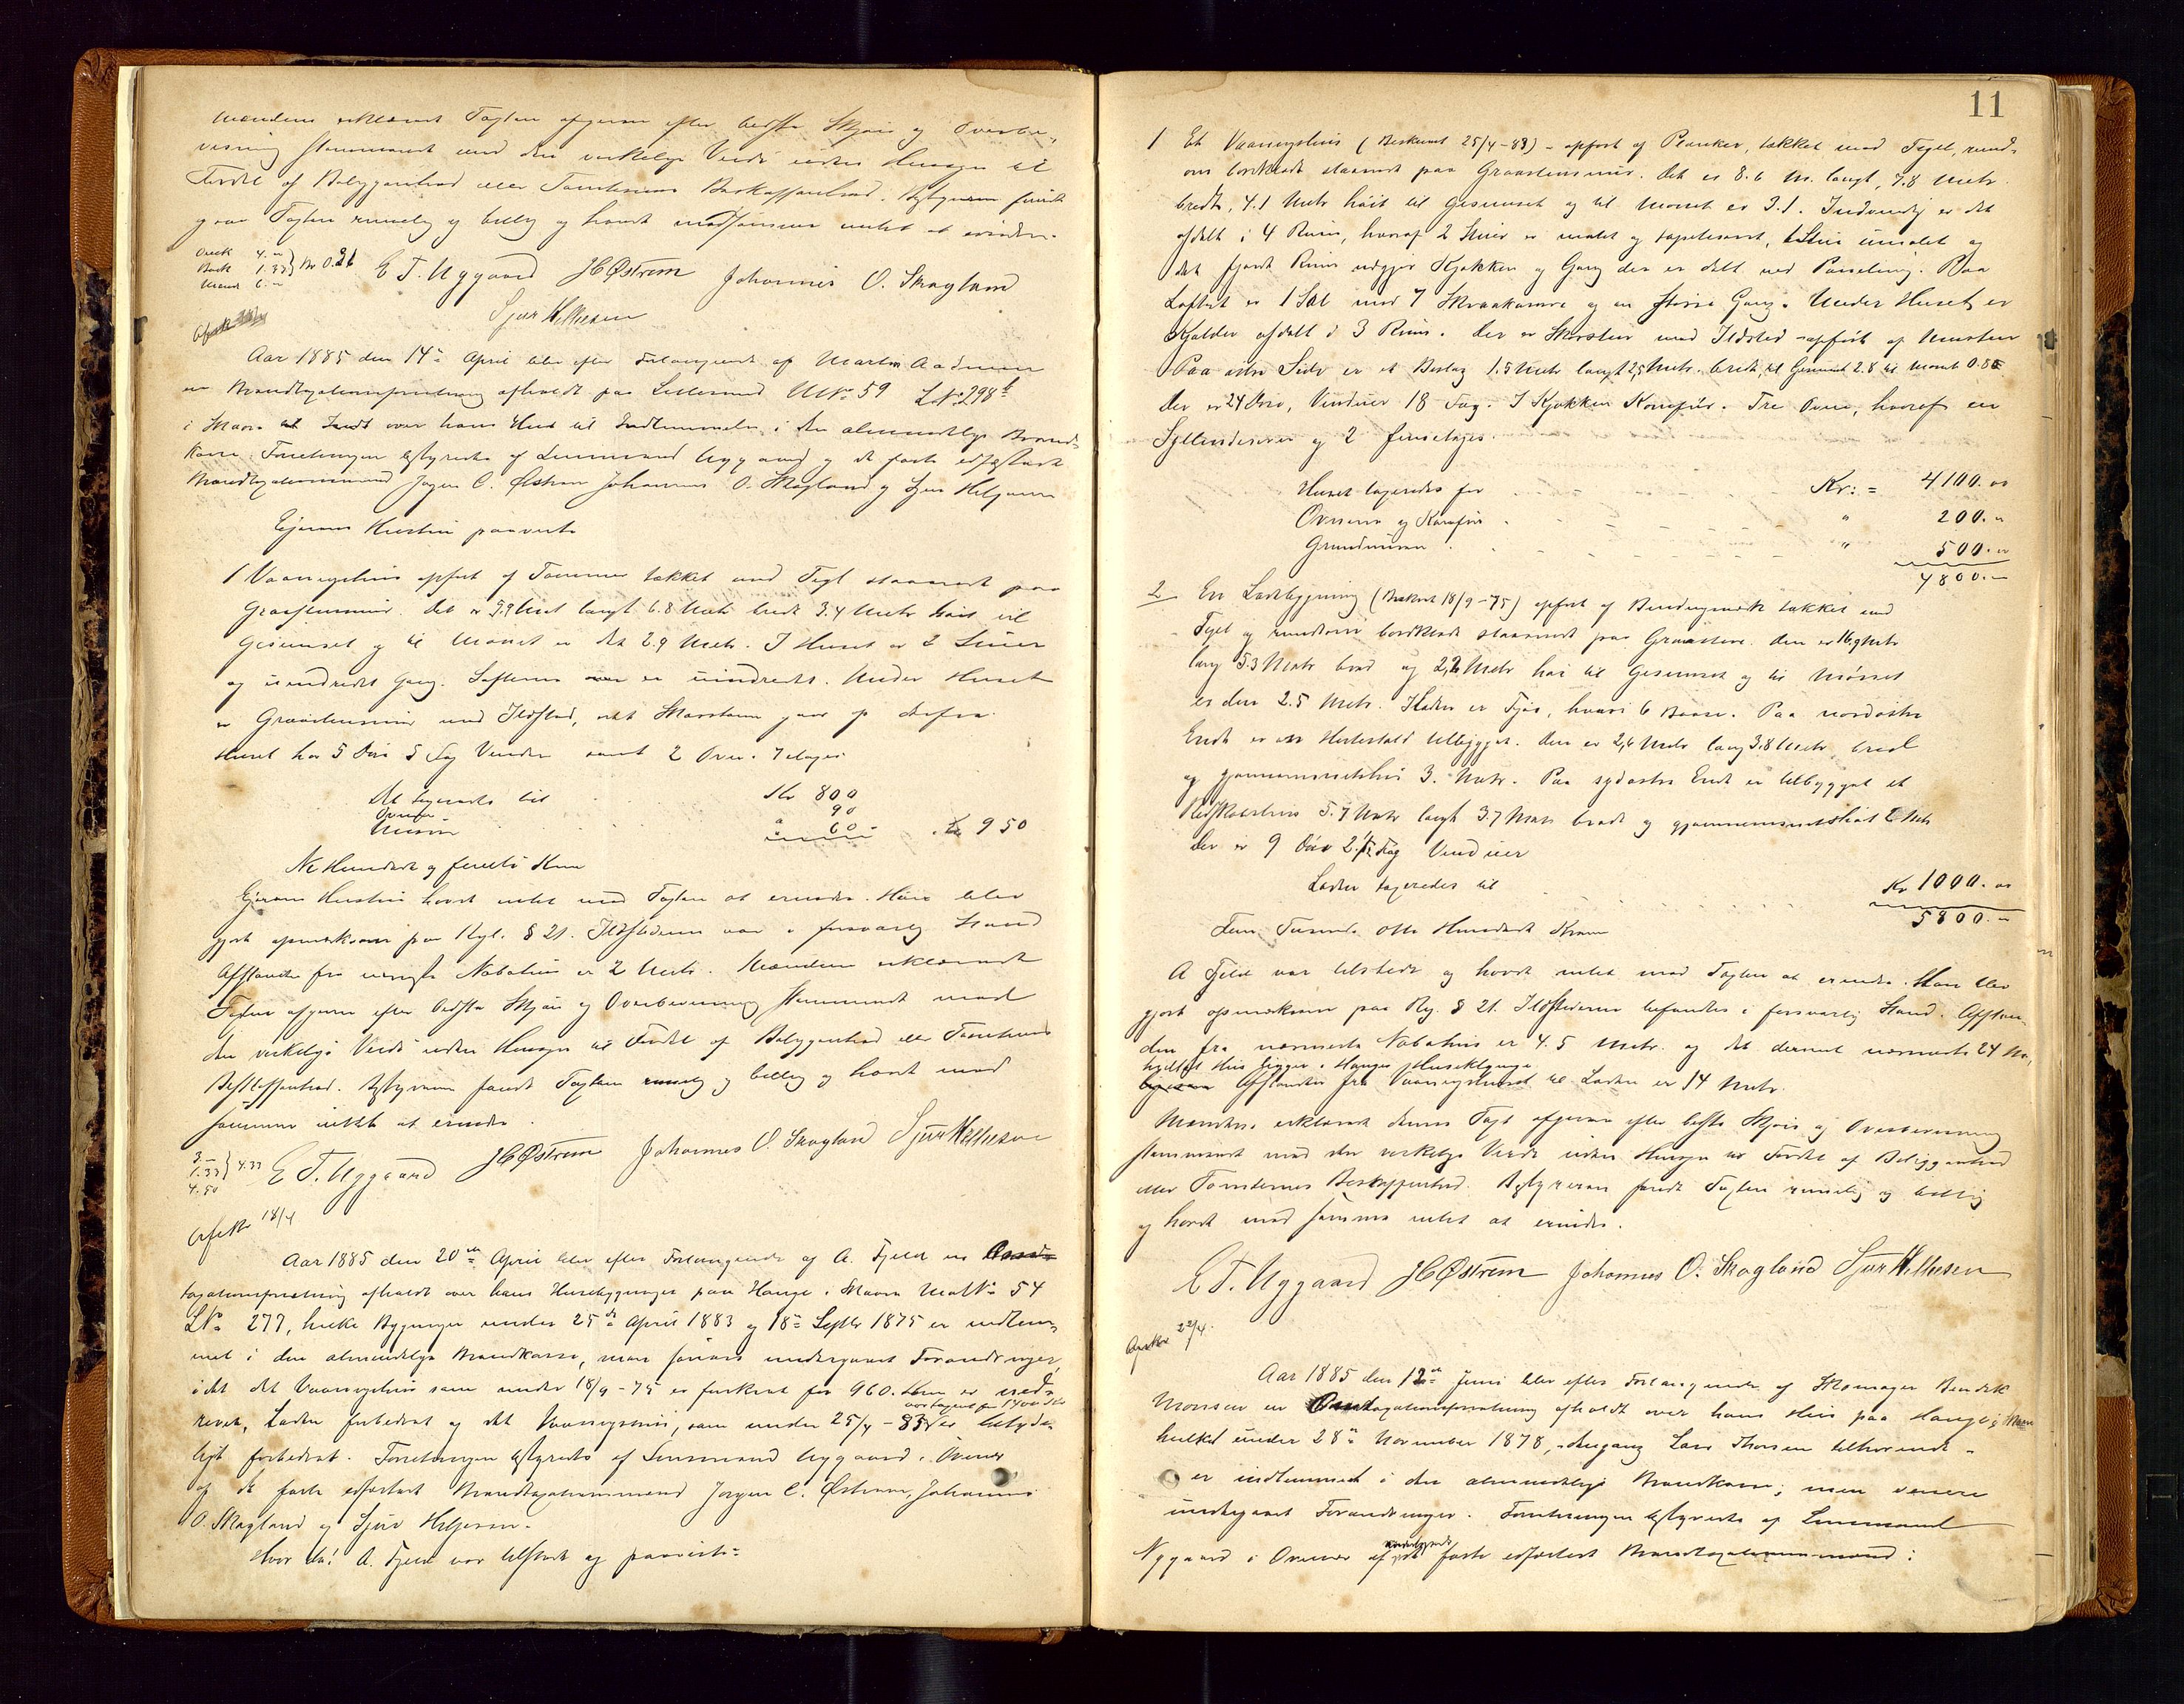 Mændene erklærede Taxten afgiven efter bedste Skjøn og Overbe-
visning stemmende med den virkelige Værdi uden Hensyn til
Fordel af Beliggenhed eller Tomternes Beskaffenhed. Bestyreren fandt
ogsaa Taxten rimelig og billig og havde mod samme intet at erindre.
E T. Nygaard JC Østrem Johannes O. Skogland
Sjur Helliesen
Aar 1885 den 14de April blev efter Forlangende af Martin Aadnesen
en Brandtaxationsforretning afholdt paa Lillesund MNo 59 LNo 298b
i Skaare over hans Hus til Indlemmelse i den almindelige Brand-
kasse. Forretningen bestyredes af Lensmand Nygaard og de faste edfæstede
Brandtaxationsmænd Jørgen C. Østrem Johannes O. Skogland og Sjur Heljesen
Ejerens Hustru paaviste
1 Vaaningshus opført af Tømmer tækket med Tegl staaende paa
Graastensmur. Det er 9.9 Meter langt 6.8 Meter bredt 3.4 Meter høit til
Gesimset og til Mønet er det 2.9 Metr. I Huset er 2 Stuer
og uindredet Gang. Loftene er uindredet. Under Huset
er Graastensmur med Ildsted, Skorsten
Huset har 5 Døre 5 Fag Vinduer samt 2 Ovne.
Det taxeredes til Kr 800
Ovne 90
Muren 60 Kr 950
Ni Hundrede og femti Kroner
Ejerens Hustru havde intet mod Taxten at erindre. Hun blev
gjort opmærksom paa Rgl. § 21. Ildstederne var i forsvarlig Stand
Afstanden fra nærmeste Nabohus er 2 Metr. Mændene erklærede
Taxten afgiven efter bedste Skjøn og Overbevisning stemmende med
den virkelige Værdi uden Hensyn til Fordel af Beliggenhed eller Tomternes
Beskaffenhed. Bestyreren fandt Taxten rimelig og billig og havde mod
samme intet at erindre.
E T. Nygaard JC Østrem Johannes O. Skogland Sjur Helliesen
18/4
Aar 1885 den 20de April blev efter Forlangende af A. Fjeld en Brand-
taxationsforretning afholdt over hans Husebygninger paa Hauge i Skaare MatNo 54
LNo 277, hvilke Bygninger under 25de April 1883 og 18de Septbr 1875 er indlem-
met i den almindelige Brandkasse, men senere undergaaet Forandringer,
idet det Vaaningshus som under 18/9-75 er forsikret for 960. Kr er ned-
revet, Laden forbedret og det Vaaningshus, som under 25/4-83 er betyde-
ligt forbedret. Forretningen bestyredes af Lensmand Nygaard i Overvær
af de faste edfæstede Brandtaxationsmænd Jørgen C. Østrem, Johannes
O. Skogland og Sjur Heljesen.
Hvor da! A. Fjeld var tilstede og paaviste:
11
1 Et Vaaningshus (Beskrevet 25/4-83) - opført af Planker, tækket med Tegl, rund-
om bordklædt staaende paa Graastensmur. Det er 8.6 M. langt, 7.8 Metr.
bredt, 4.1 Metr høit til Gesimset og til Mønet er 3.1. Indvendig er det
afdelt i 4 Rum, hvoraf 2 Stuer er malet og tapetseret, 1 Stue umalet og
det fjerde Rum udgjør Kjøkken og Gang der er delt ved Paneling. Paa
Loftet er 1 Sal med 7 Skraakamre og en større Gang. Under Huset er
Kjælder afdelt i 3 Rum. Der er Skorsten med Ildsted opført af Mursten
Paa Side er et Bislag 1.5 Metr langt 2,5 Metr. bredt, til Gesimset 2.8 til Mønet 0.80
Der er 24 Døre, Vinduer 18 Fag. I Kjøkken Komfur. Tre Ovne, hvoraf en
Syllinderovn og 2 fireetages.
Huset taxeredes for Kr: = 4100. oo
Ovnene og Komfur " 200. "
Grundmuren " 500. "
4800. -
2 En Ladebygning (Beskrevet 18/9-75) opført af Bindingsværk tækket med
Tegl og rundtom bordklædt staaende paa Graasten. Den er 16,9 Metr
lang 5.3 Metr bred og 2,2 Metr høi til Gesimset og til Mønet
er den 2.5 Metr. I Laden er Fjøs, hvori 6 Baase. Paa nordøstre
Ende er en Hestestald tilbygget. Den er 2,6 Metr lang 3.8 Metr bred
og gjennemsnitshøi 3. Metr. Paa sydøstre Ende er tilbygget et
Redskabshus 5.7 Metr langt 3.7 Metr bredt og gjennemsnitshøit 2 Metr
Der er 9 Døre 2 1/2 Fag Vinduer
Laden taxeredes til Kr 1000. oo
5800. -
Fem Tusinde otte Hundrede Kroner
A Fjeld var tilstede og havde intet mod Taxten at erindre. Han blev
gjort opmærksom paa Rgl. § 21. Ildstederne befandtes i forsvarlig Stand. Afstan-
den fra nærmeste Nabohus er 4.5 Metr. og det dernæst nærmeste 24 M.
Afstanden fra Vaaningshuset til Laden er 14 Metr.
Mændene erklærede denne Taxt afgiven efter bedste Skjøn og Overbevisning
stemmende med den virkelige Værdi uden Hensyn til Fordel af Beliggenhed
eller Tomternes Beskaffenhed. Bestyreren fandt Taxten rimelig og billig
og havde mod samme intet at erindre.
E T. Nygaard JC Østrem Johannes O. Skogland Sjur Helliesen
22/4.
Aar 1885 den 12te Juni blev efter Forlangende af Skomager Bendik
Monsen en Brandtaxationsforretning afholdt over hans Hus paa Hauge i Skaare
hvilket under 28de November 1878, dengang Lars Thorsen tilhørende -
er indlemmet i den almindelige Brandkasse, men senere
undergaaet Forandringer. Forretningen bestyredes af Lensmand
Nygaard i Overvær af faste edfæstede Brandtaxationsmænd: